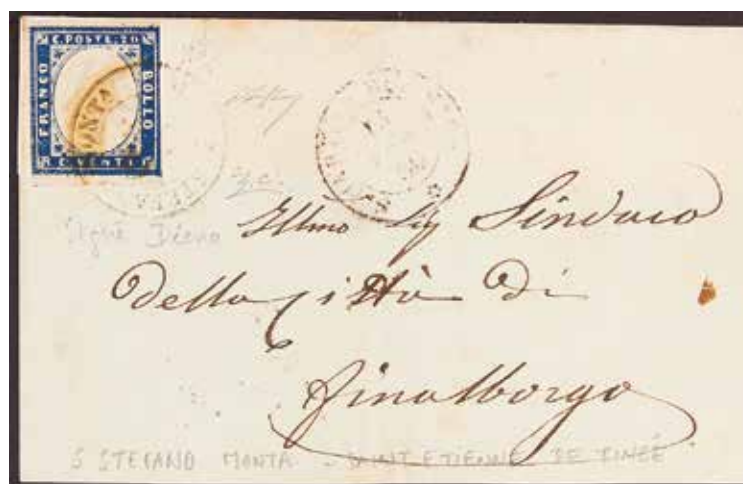 C. POSTE. 20
FRANCO
BOLLO
C. VENTI
ONTA
Illmo Sig Sindaco
della Città di
Finalborgo
S STEFANO MONTA - SAINT ETIENNE DE TINÉE